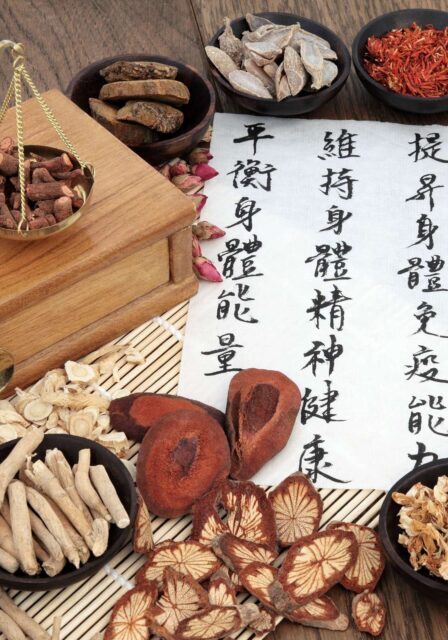 提昇身體免疫能力
維持身體精神健康
平衡身體能量